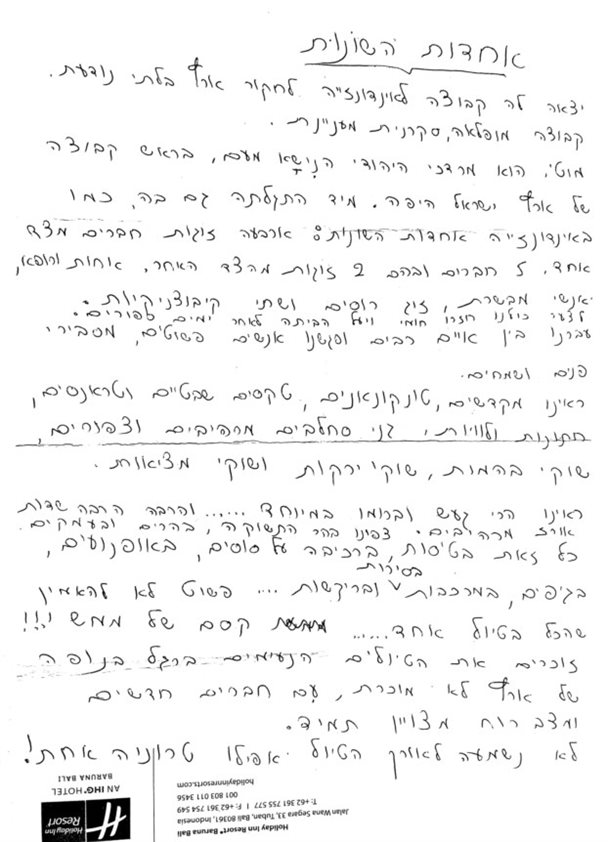 אחדות השונות
יצאה לה קבוצה לאינדונזייה לחקור ארץ בלתי נודעת.
קבוצה מופלאה, סקרנית מעניינת.
מוטי, הוא מרדכי היהודי הנישא מעם, בראש קבוצה
של ארץ ישראל היפה. מיד התגלתה גם בה, כמו
באינדונזייה אחדות השונות: ארבעה זוגות חברים מצד
אחד, 5 חברים ובהם 2 זוגות מהצד האחר. אחות ורופא,
אנשי מבשרת, זוג רוסים ושתי קיבוצניקיות.
לצער כולנו חזרו חומי ויעל הביתה לאחר ימים ספורים.
עברנו בין איים רבים ופגשנו אנשים פשוטים, מסבירי
פנים ושמחים.
ראינו מקדשים, טונקונאנים, טקסים שבטיים וטראנסים,
חתונות ולוויות, גני סחלבים מרהיבים וצפורים,
שוקי בהמות, שוקי ירקות ושוקי מציאות.
ראינו הרי געש וברומו במיוחד...... והרבה הרבה שדות
אורז מרהיבים. צפינו בהר התשוקה, בהרים ובעמקים.
כל זאת בטיסות, ברכיבה על סוסים, באופנועים,
בסירות
בג'יפים, במרכבות ובריקשות .... פשוט לא להאמין
שהכל בטיול אחד..... קסם של ממש !!!
זוכרים את הטיולים הנעימים ברגל בנופה
של ארץ לא מוכרת, עם חברים חדשים
ומצב רוח מצויין תמיד.
לא נשמעה לאורך הטיול אפילו טרוניה אחת!
Holiday Inn Resort
AN IHG® HOTEL
BARUNA BALI
Holiday Inn Resort® Baruna Bali
Jalan Wana Segara 33, Tuban, Bali 80361, Indonesia
T: +62 361 755 577 | F: +62 361 754 549
001 803 011 3456
holidayinnresorts.com